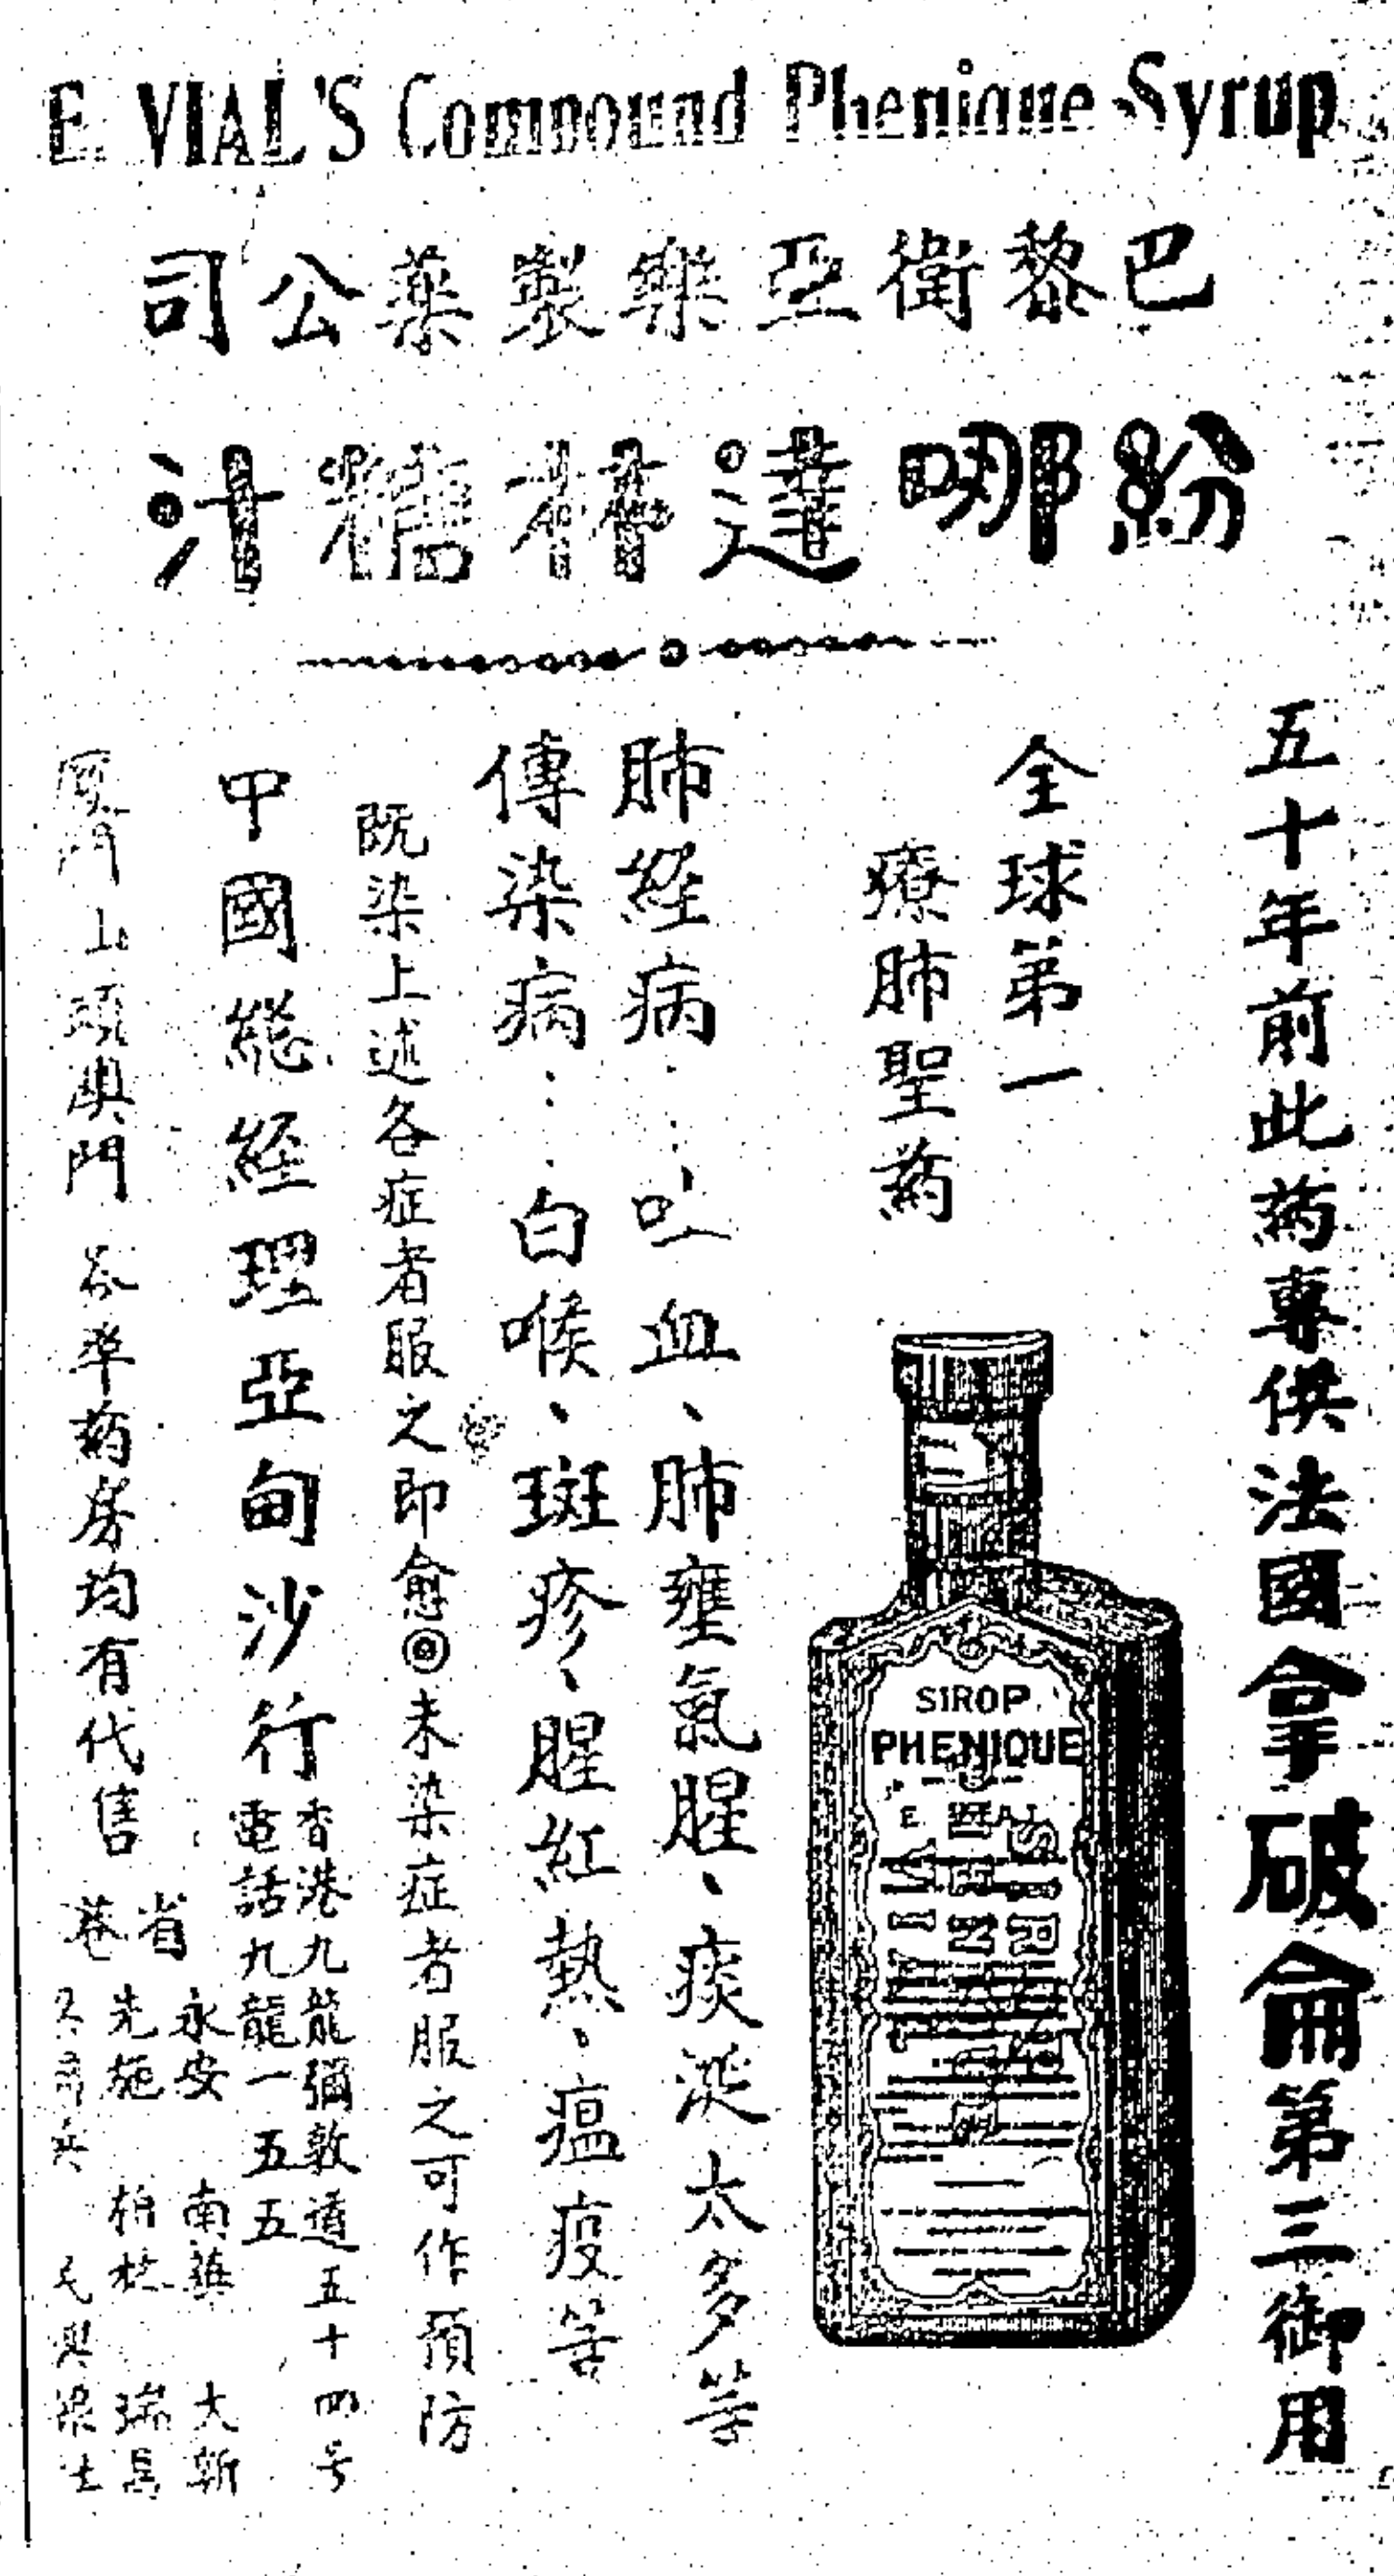 E. VIAL'S Compound Phenique Syrup
巴黎衛亞樂製藥公司
紛哪達林糖汁
五十年前此药專供法國拿破侖第三御用
全球第一
療肺聖药
SIROP
PHENIQUE
肺経病：吐血、肺壅氣腥、痰涎太多等
傳染病：白喉、斑疹、腥紅熱、瘟疫等
既染上述各症者服之即愈◎未染症者服之可作預防
中國総経理亞甸沙行
香港九龍彌敦道五十四号
電話九龍一五五
厦門汕頭奥門 各埠药房均有代售
省港
永安 南華 大新
先施 栢林 瑞昌